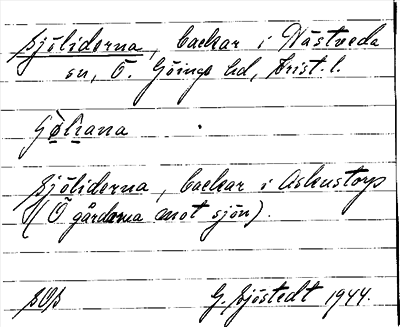 Sjöliderna, backar i Nästveda
sn, Ö. Göinge hd, Krist. l.
Sjöliderna, backar i Askustorp
(Ö gårdarna mot sjön).
SOS G. Sjöstedt 1944.